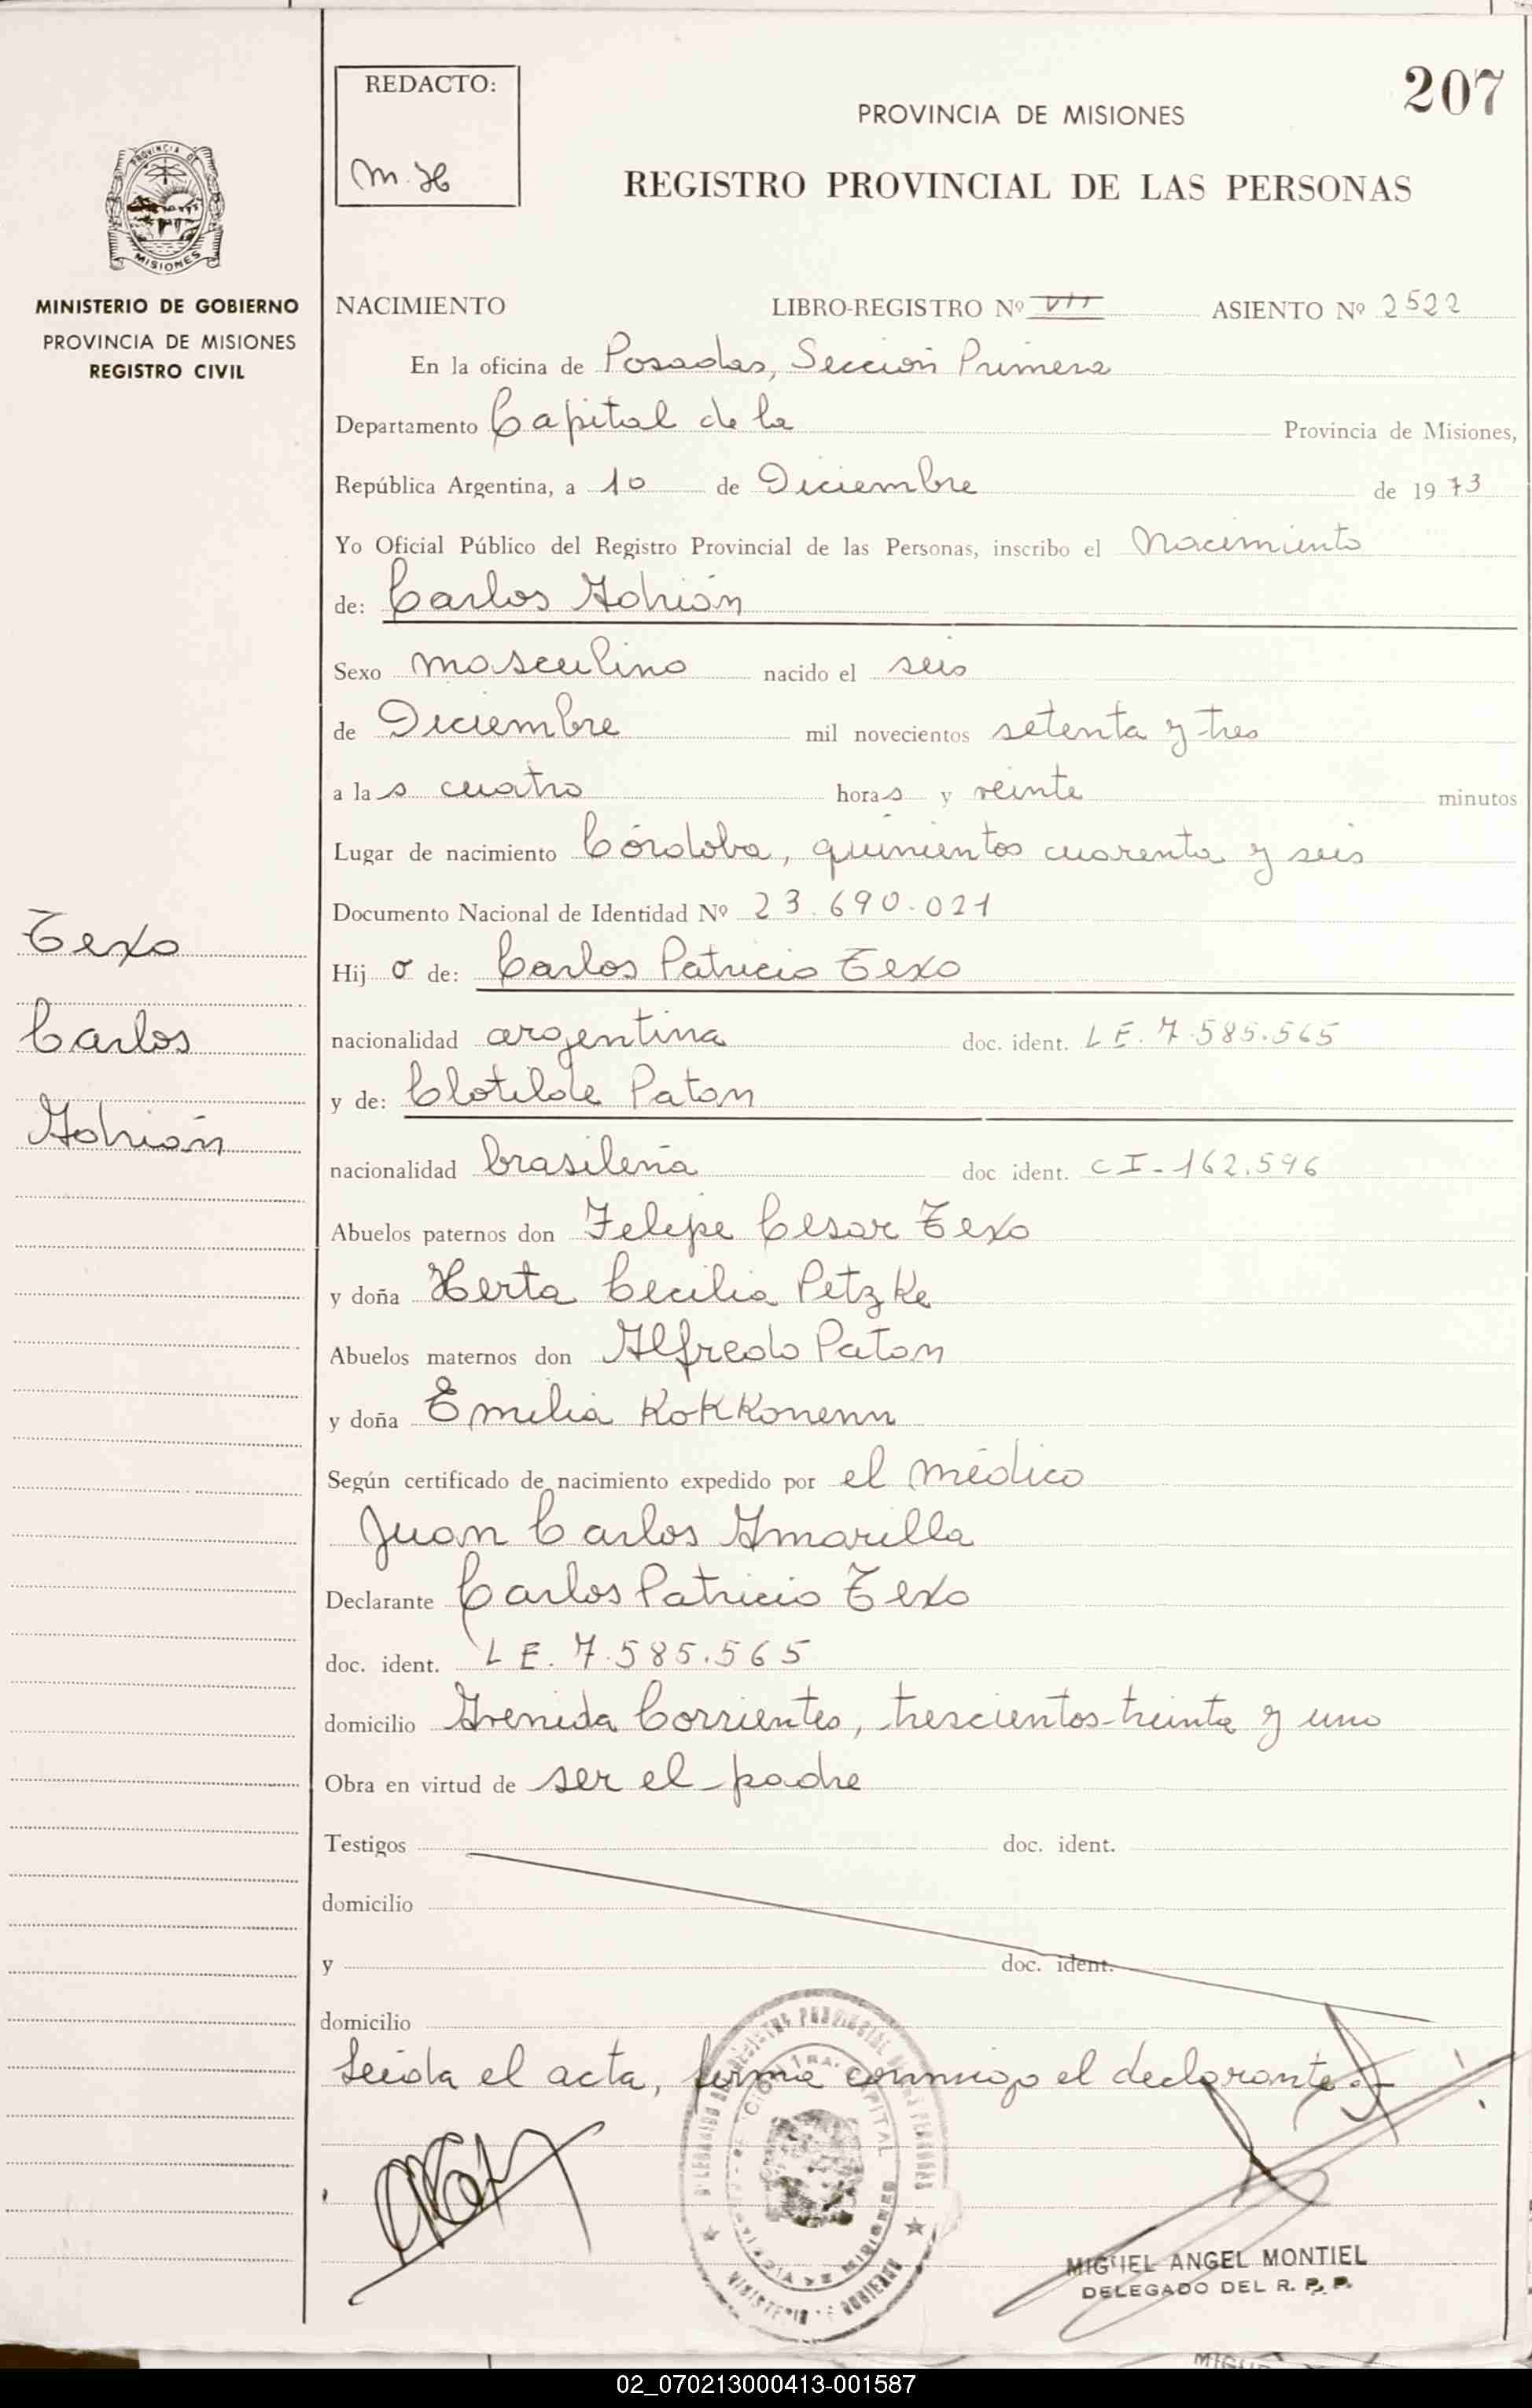 207
REDACTO:
M. H
PROVINCIA DE MISIONES
REGISTRO PROVINCIAL DE LAS PERSONAS
PROVINCIA DE
MISIONES
MINISTERIO DE GOBIERNO
PROVINCIA DE MISIONES
REGISTRO CIVIL
NACIMIENTO LIBRO-REGISTRO Nº VII ASIENTO Nº 2522
En la oficina de Posadas, Sección Primera
Departamento Capital de la Provincia de Misiones,
República Argentina, a 10 de Diciembre de 1973
Yo Oficial Público del Registro Provincial de las Personas, inscribo el Nacimiento
de: Carlos Adrián
Sexo masculino nacido el seis
de Diciembre mil novecientos setenta y tres
a las cuatro horas y veinte minutos
Lugar de nacimiento Córdoba, quinientos cuarenta y seis
Documento Nacional de Identidad Nº 23.690.021
Hijo de: Carlos Patricio Texo
nacionalidad argentina doc. ident. LE. 7.585.565
y de: Clotilde Paton
nacionalidad brasileña doc ident. CI-162.596
Abuelos paternos don Felipe Cesar Texo
y doña Herta Cecilia Petzke
Abuelos maternos don Alfredo Paton
y doña Emilia Kokkonenn
Según certificado de nacimiento expedido por el médico
Juan Carlos Amarilla
Declarante Carlos Patricio Texo
doc. ident. LE. 7.585.565
domicilio Avenida Corrientes, trescientos treinta y uno
Obra en virtud de ser el padre
Testigos doc. ident.
domicilio
y doc. ident.
domicilio
Leída el acta, firma conmigo el declarante.-
Texo
Carlos
Adrián
MIGUEL ANGEL MONTIEL
DELEGADO DEL R. P. P.
02_070213000413-001587